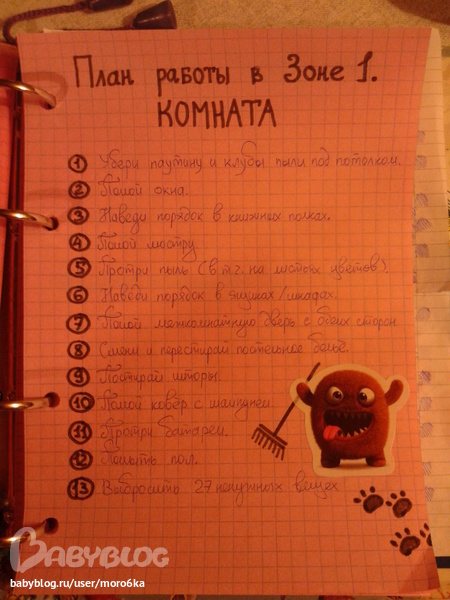 План работы в Зоне 1.
КОМНАТА
1 Убери паутину и клубы пыли под потолком.
2 Помой окна.
3 Наведи порядок в книжных полках.
4 Помой люстру.
5 Протри пыль (в т.ч. на листьях цветов).
6 Наведи порядок в ящиках/шкафах.
7 Помой межкомнатную дверь с обеих сторон
8 Смени и перестирай постельное бельё.
9 Постирай шторы.
10 Помой ковёр с шампунем.
11 Протри батареи.
12 Помыть пол.
13 Выбросить 27 ненужных вещей
BABYBLOG
babyblog.ru/user/moro6ka